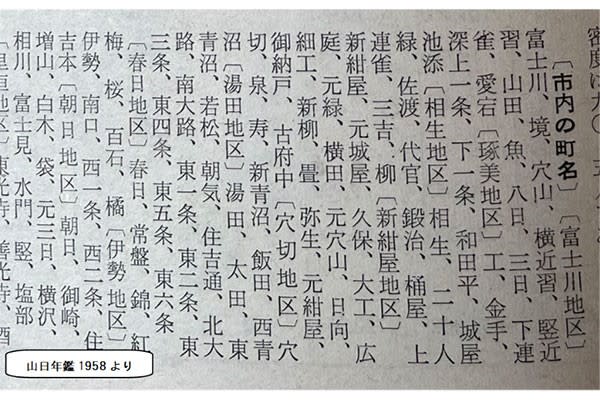 密度は九〇
〔市内の町名〕〔富士川地区〕
富士川、境、穴山、横近習、竪近
習、山田、魚、八日、三日、下連
雀、愛宕〔琢美地区〕工、金手、
深上一条、下一条、和田平、城屋
池添〔相生地区〕相生、二十人
緑、佐渡、代官、鍛治、桶屋、上
連雀、三吉、柳〔新紺屋地区〕
新紺屋、元城屋、久保、大工、広
庭、元緑、横田、元穴山、日向、
細工、新柳、畳、弥生、元紺屋、
御納戸、古府中〔穴切地区〕穴
切、泉、寿、新青沼、飯田、西青
沼〔湯田地区〕湯田、太田、東
青沼、若松、朝気、住吉通、北大
路、南大路、東一条、東二条、東
三条、東四条、東五条、東六条
〔春日地区〕春日、常盤、錦、紅
梅、桜、百石、橘〔伊勢地区〕
伊勢、南口、西一条、西二条、住
吉本〔朝日地区〕朝日、御崎、
増山、白木、袋、元三日、横沢、
相川、富士見、水門、竪、塩部
〔里垣地区〕東光寺、善光寺、酒
山日年鑑1958より